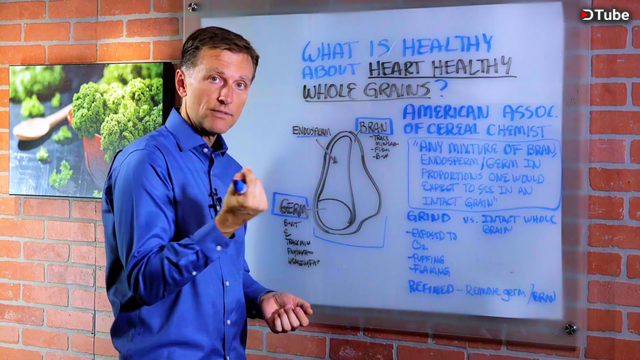 DTube
WHAT IS HEALTHY
ABOUT HEART HEALTHY
WHOLE GRAINS?
AMERICAN ASSOC.
OF CEREAL CHEMIST
"ANY MIXTURE OF BRAN,
ENDOSPERM/GERM IN
PROPORTIONS ONE WOULD
EXPECT TO SEE IN AN
INTACT GRAIN"
ENDOSPERM
BRAN
GERM
E
GRIND VS. INTACT WHOLE
GRAIN
- EXPOSED TO
O2
- PUFFING
- FLAKING
REFINED - REMOVE GERM/BRAN